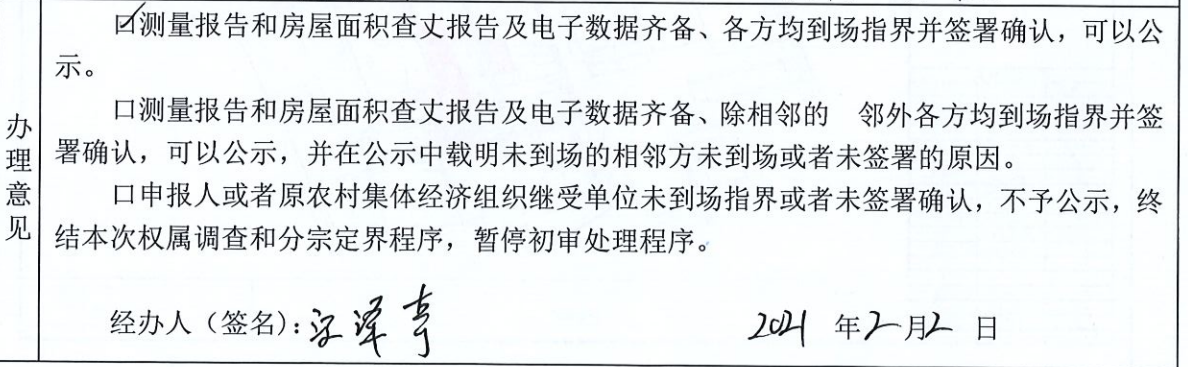 办理意见
☑测量报告和房屋面积查丈报告及电子数据齐备、各方均到场指界并签署确认，可以公
示。
口测量报告和房屋面积查丈报告及电子数据齐备、除相邻的　邻外各方均到场指界并签
署确认，可以公示，并在公示中载明未到场的相邻方未到场或者未签署的原因。
口申报人或者原农村集体经济组织继受单位未到场指界或者未签署确认，不予公示，终
结本次权属调查和分宗定界程序，暂停初审处理程序。
经办人（签名）： 2021 年 2 月 2 日